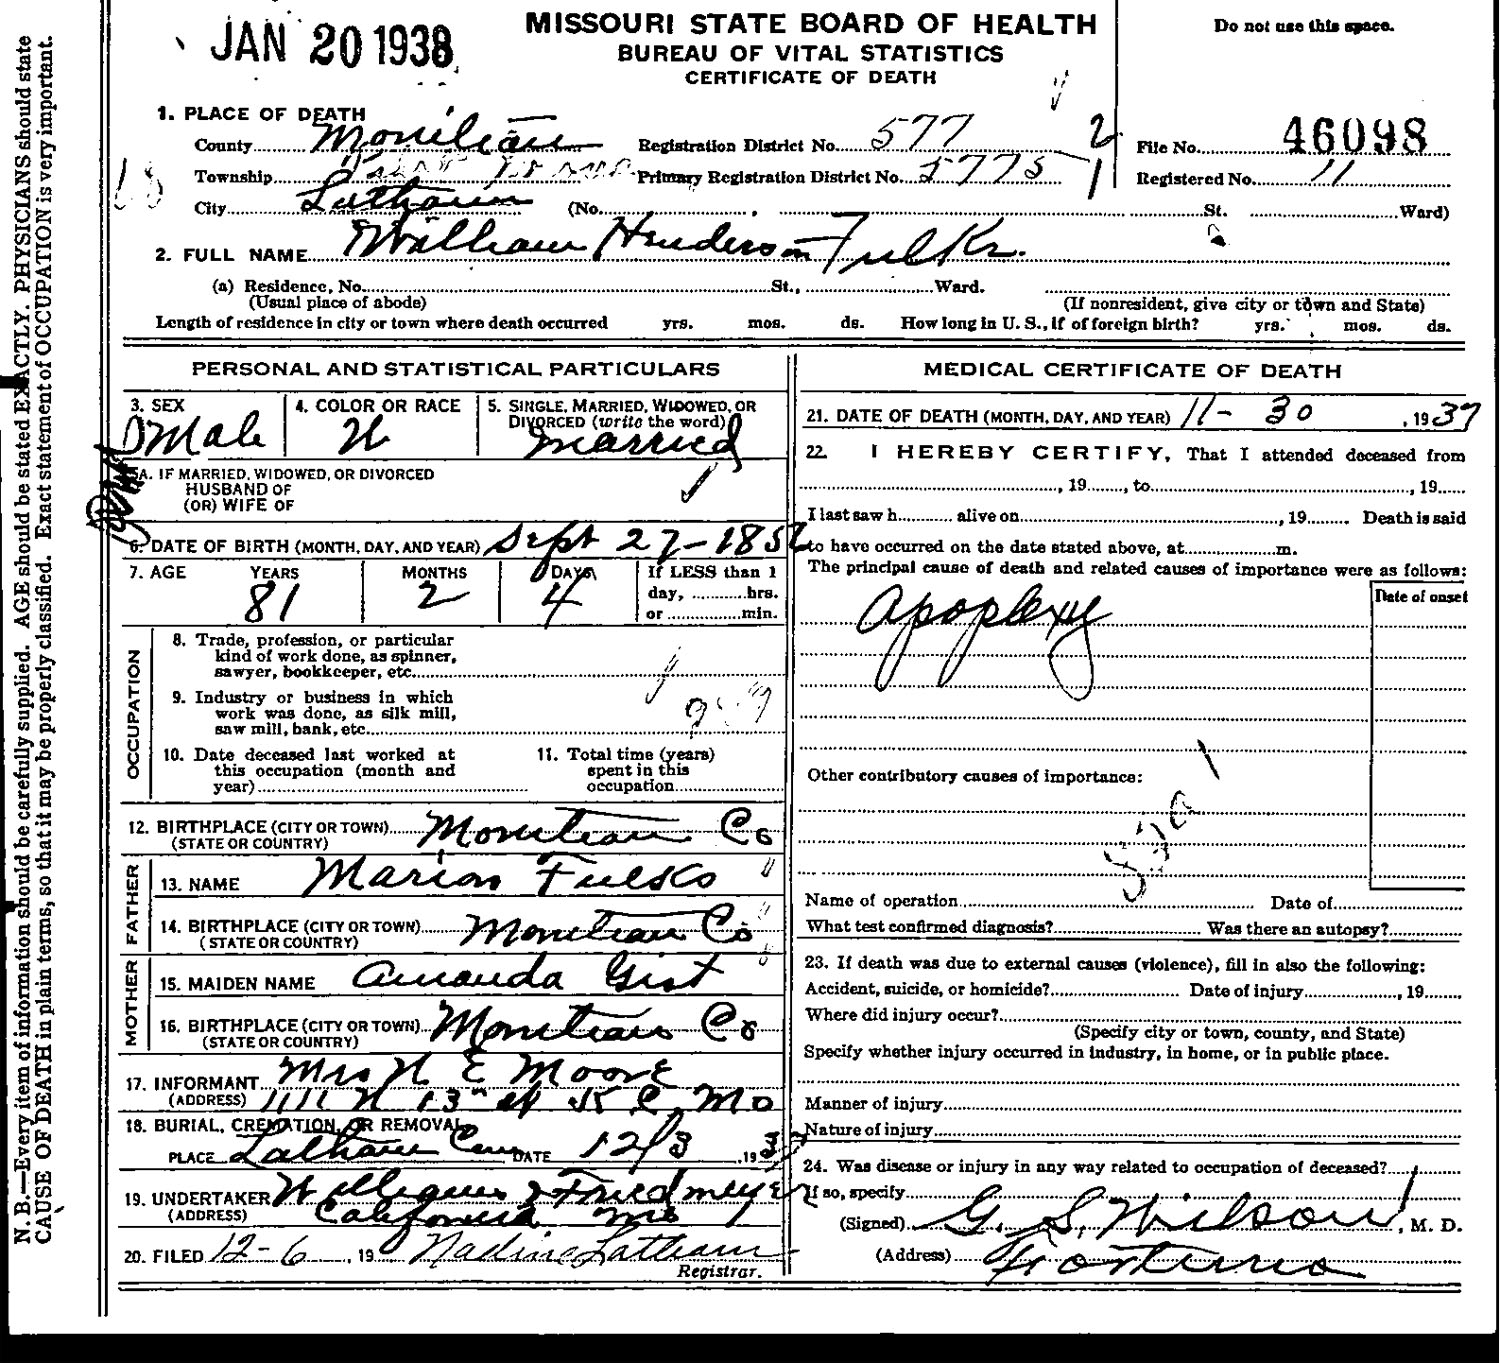 JAN 20 1938
MISSOURI STATE BOARD OF HEALTH
BUREAU OF VITAL STATISTICS
CERTIFICATE OF DEATH
Do not use this space.
1. PLACE OF DEATH
County Moniteau Registration District No. 577 2 File No. 46098
Township Primary Registration District No. 5775 1 Registered No. 11
City Latham (No. St. Ward)
2. FULL NAME William Henderson Fulks.
(a) Residence, No. St., Ward.
(Usual place of abode) (If nonresident, give city or town and State)
Length of residence in city or town where death occurred yrs. mos. ds. How long in U. S., if of foreign birth? yrs. mos. ds.
PERSONAL AND STATISTICAL PARTICULARS
3. SEX 4. COLOR OR RACE 5. SINGLE, MARRIED, WIDOWED, OR
DIVORCED (write the word)
Male W married
5A. IF MARRIED, WIDOWED, OR DIVORCED
HUSBAND OF
(OR) WIFE OF
6. DATE OF BIRTH (MONTH, DAY, AND YEAR) Sept 27-185
7. AGE YEARS MONTHS DAYS If LESS than 1
81 2 4 day, hrs.
or min.
OCCUPATION
8. Trade, profession, or particular
kind of work done, as spinner,
sawyer, bookkeeper, etc.
9. Industry or business in which
work was done, as silk mill,
saw mill, bank, etc.
10. Date deceased last worked at
this occupation (month and
year)
11. Total time (years)
spent in this
occupation
12. BIRTHPLACE (CITY OR TOWN) Moniteau Co
(STATE OR COUNTRY)
FATHER
13. NAME Marion Fulks
14. BIRTHPLACE (CITY OR TOWN) Moniteau Co
(STATE OR COUNTRY)
MOTHER
15. MAIDEN NAME Amanda Gist
16. BIRTHPLACE (CITY OR TOWN) Moniteau Co
(STATE OR COUNTRY)
17. INFORMANT Mrs N E Moore
(ADDRESS) 1111 N 13 st K C Mo
18. BURIAL, CREMATION, OR REMOVAL
PLACE Latham Cem DATE 12/3 1937
19. UNDERTAKER Williams & Friedmeyer
(ADDRESS) California Mo
20. FILED 12-6, 19 Nadine Latham
Registrar.
MEDICAL CERTIFICATE OF DEATH
21. DATE OF DEATH (MONTH, DAY, AND YEAR) 11-30, 1937
22. I HEREBY CERTIFY, That I attended deceased from
, 19 , to , 19
I last saw h alive on , 19 Death is said
to have occurred on the date stated above, at m.
The principal cause of death and related causes of importance were as follows:
Date of onset
Apoplexy
Other contributory causes of importance:
Name of operation Date of
What test confirmed diagnosis? Was there an autopsy?
23. If death was due to external causes (violence), fill in also the following:
Accident, suicide, or homicide? Date of injury , 19
Where did injury occur?
(Specify city or town, county, and State)
Specify whether injury occurred in industry, in home, or in public place.
Manner of injury
Nature of injury
24. Was disease or injury in any way related to occupation of deceased?
If so, specify
(Signed) G. S. Wilson, M. D.
(Address) Fortuna
N. B.—Every item of information should be carefully supplied. AGE should be stated EXACTLY. PHYSICIANS should state
CAUSE OF DEATH in plain terms, so that it may be properly classified. Exact statement of OCCUPATION is very important.